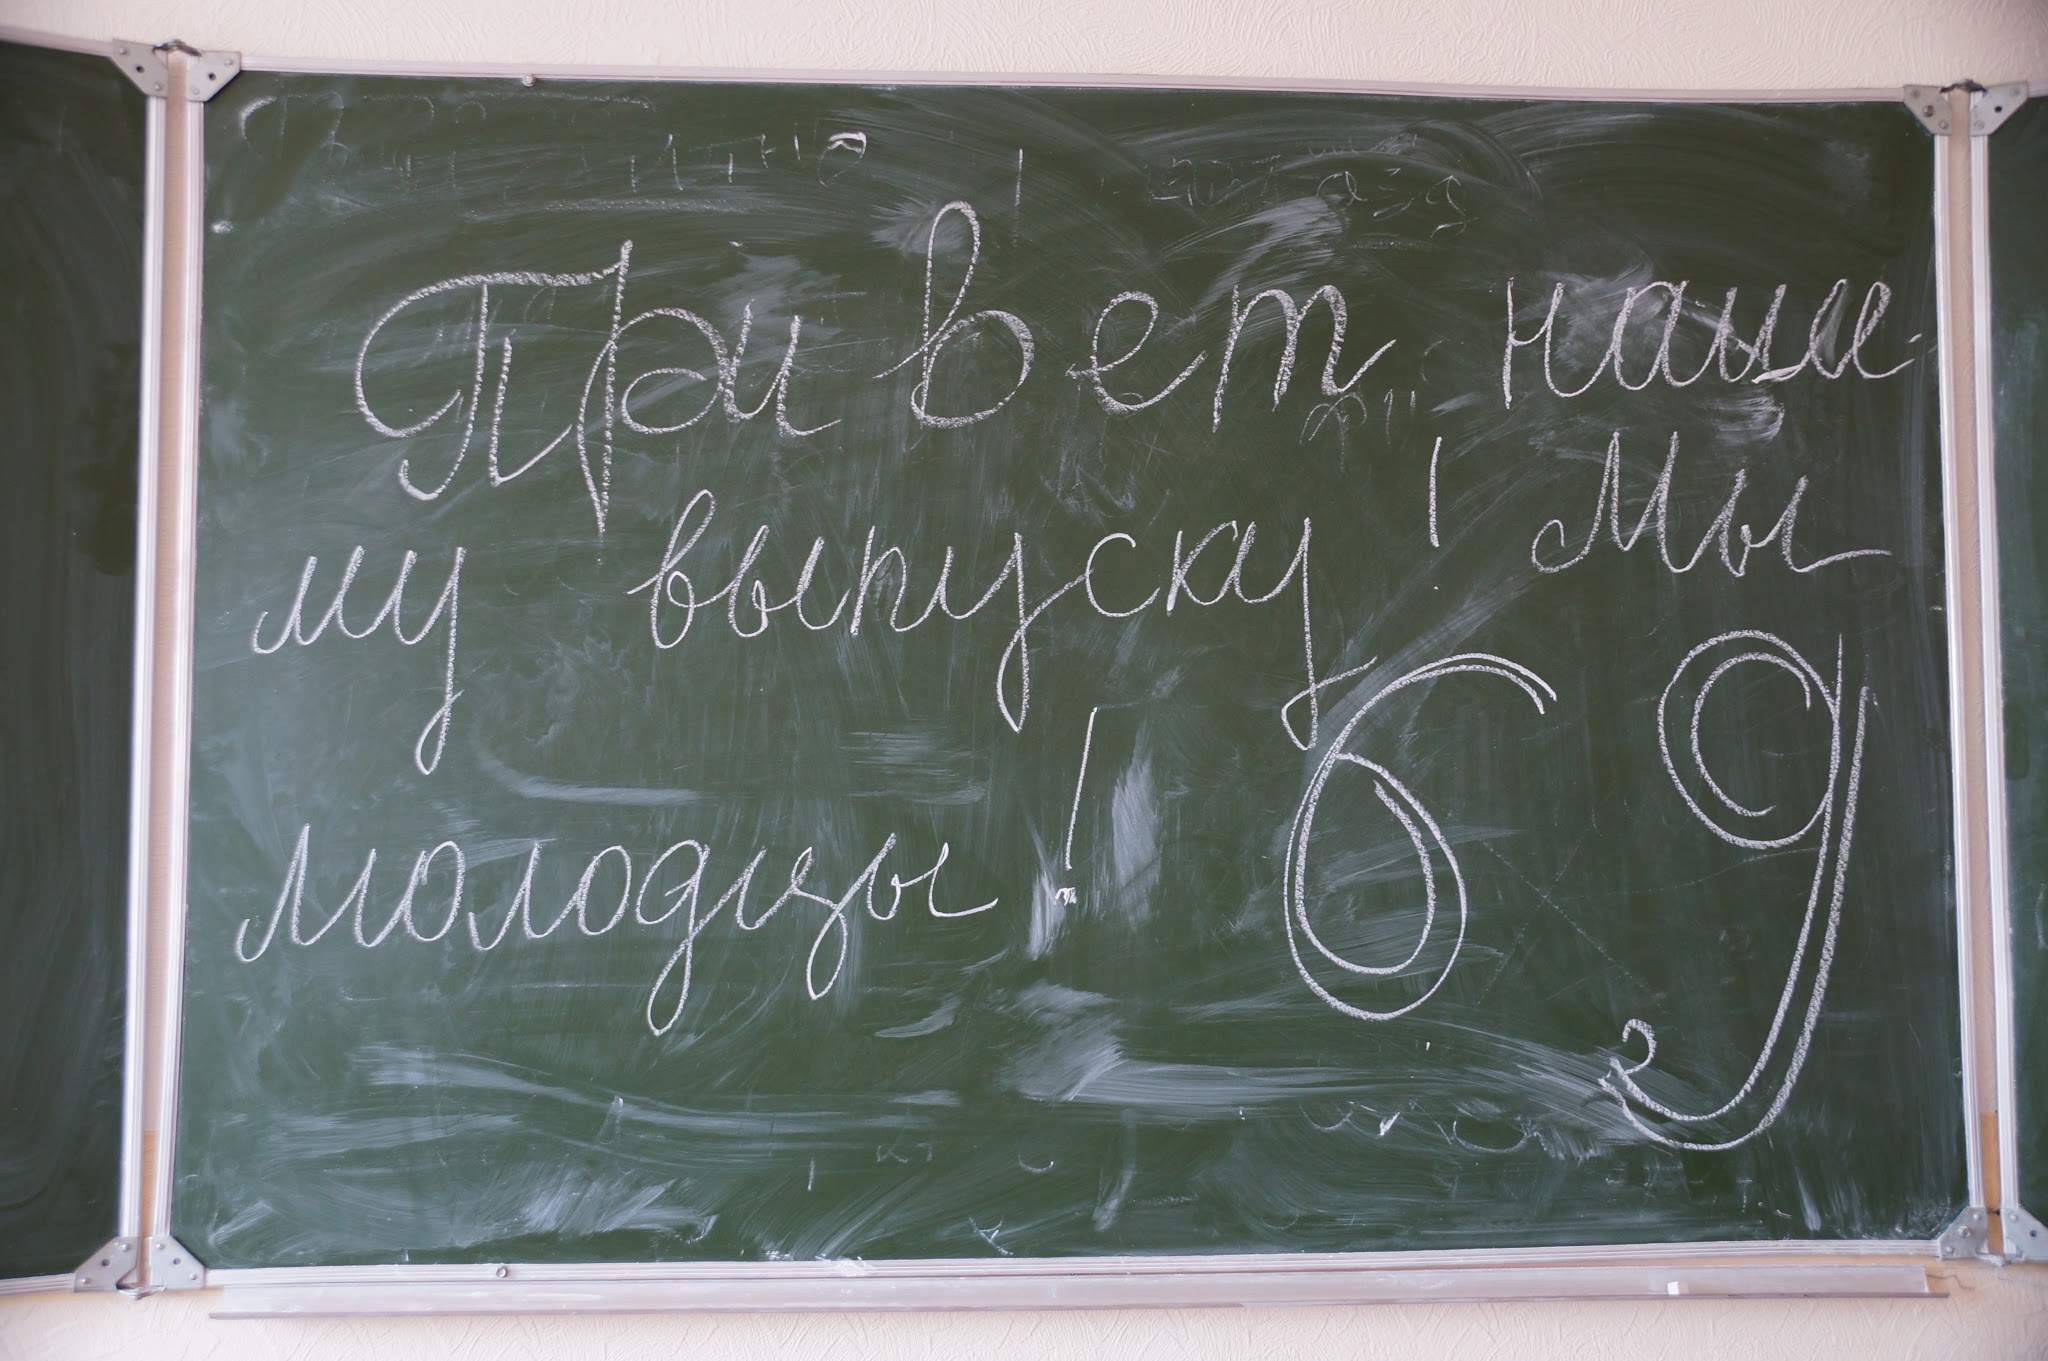 Привет, наше-
му выпуску! Мы
молодцы! 69